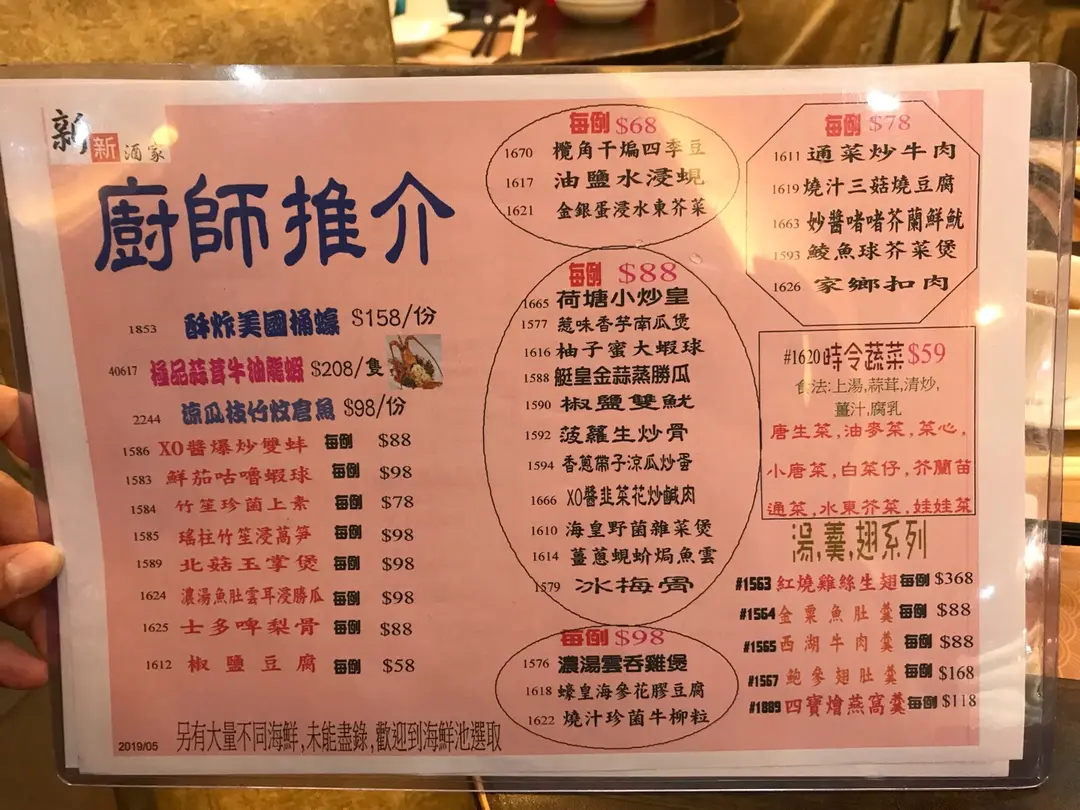 新新酒家
廚師推介
1853 酥炸美國桶蠔 $158/份
40617 極品蒜茸牛油龍蝦 $208/隻
2244 涼瓜枝竹炆倉魚 $98/份
1586 XO醬爆炒雙蚌 每例 $88
1583 鮮茄咕嚕蝦球 每例 $98
1584 竹笙珍菌上素 每例 $78
1585 瑤柱竹笙浸萵筍 每例 $98
1589 北菇玉掌煲 每例 $98
1624 濃湯魚肚雲耳浸勝瓜 每例 $98
1625 士多啤梨骨 每例 $88
1612 椒鹽豆腐 每例 $58
另有大量不同海鮮,未能盡錄,歡迎到海鮮池選取
2019/05
每例 $68
1670 欖角干煸四季豆
1617 油鹽水浸蜆
1621 金銀蛋浸水東芥菜
每例 $88
1665 荷塘小炒皇
1577 惹味香芋南瓜煲
1616 柚子蜜大蝦球
1588 艇皇金蒜蒸勝瓜
1590 椒鹽雙魷
1592 菠蘿生炒骨
1594 香蔥帶子涼瓜炒蛋
1666 XO醬韭菜花炒鹹肉
1610 海皇野菌雜菜煲
1614 薑蔥蜆蚧焗魚雲
1579 冰梅骨
每例 $98
1576 濃湯雲吞雞煲
1618 蠔皇海參花膠豆腐
1622 燒汁珍菌牛柳粒
每例 $78
1611 通菜炒牛肉
1619 燒汁三菇燒豆腐
1663 妙醬啫啫芥蘭鮮魷
1593 鯪魚球芥菜煲
1626 家鄉扣肉
#1620 時令蔬菜 $59
食法:上湯,蒜茸,清炒,
薑汁,腐乳
唐生菜,油麥菜,菜心,
小唐菜,白菜仔,芥蘭苗
通菜,水東芥菜,娃娃菜
湯,羹,翅系列
#1563 紅燒雞絲生翅 每例 $368
#1564 金粟魚肚羹 每例 $88
#1565 西湖牛肉羹 每例 $88
#1567 鮑參翅肚羹 每例 $168
#1889 四寶燴燕窩羹 每例 $118